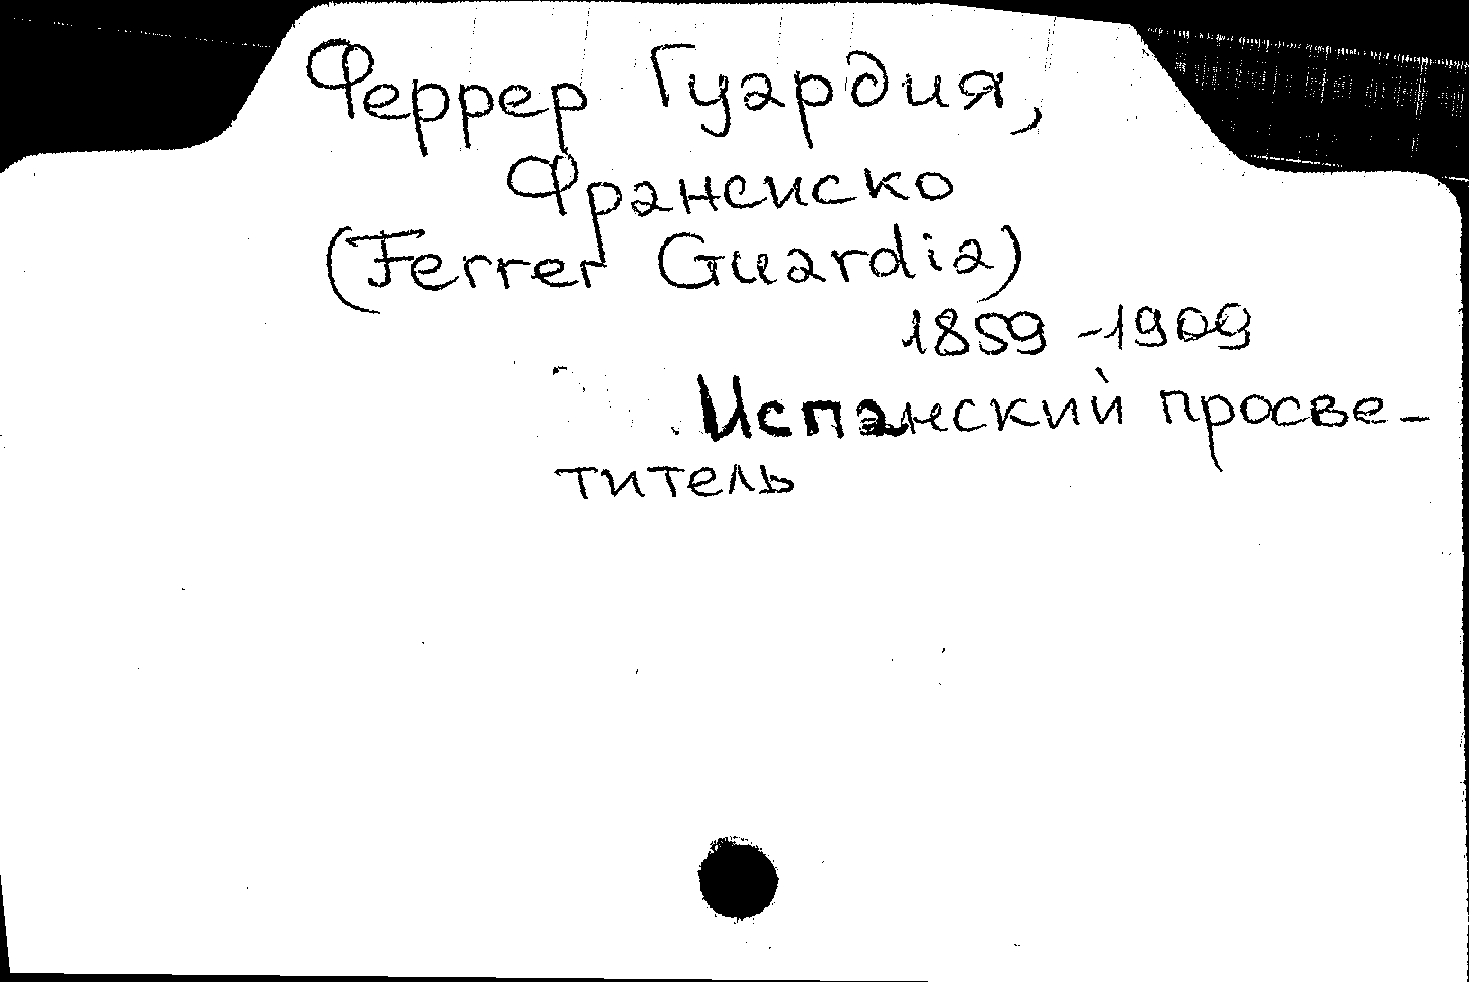 Феррер Гуардия,
Франсиско
(Ferrer Guardia)
1859-1909
Испанский просве-
титель